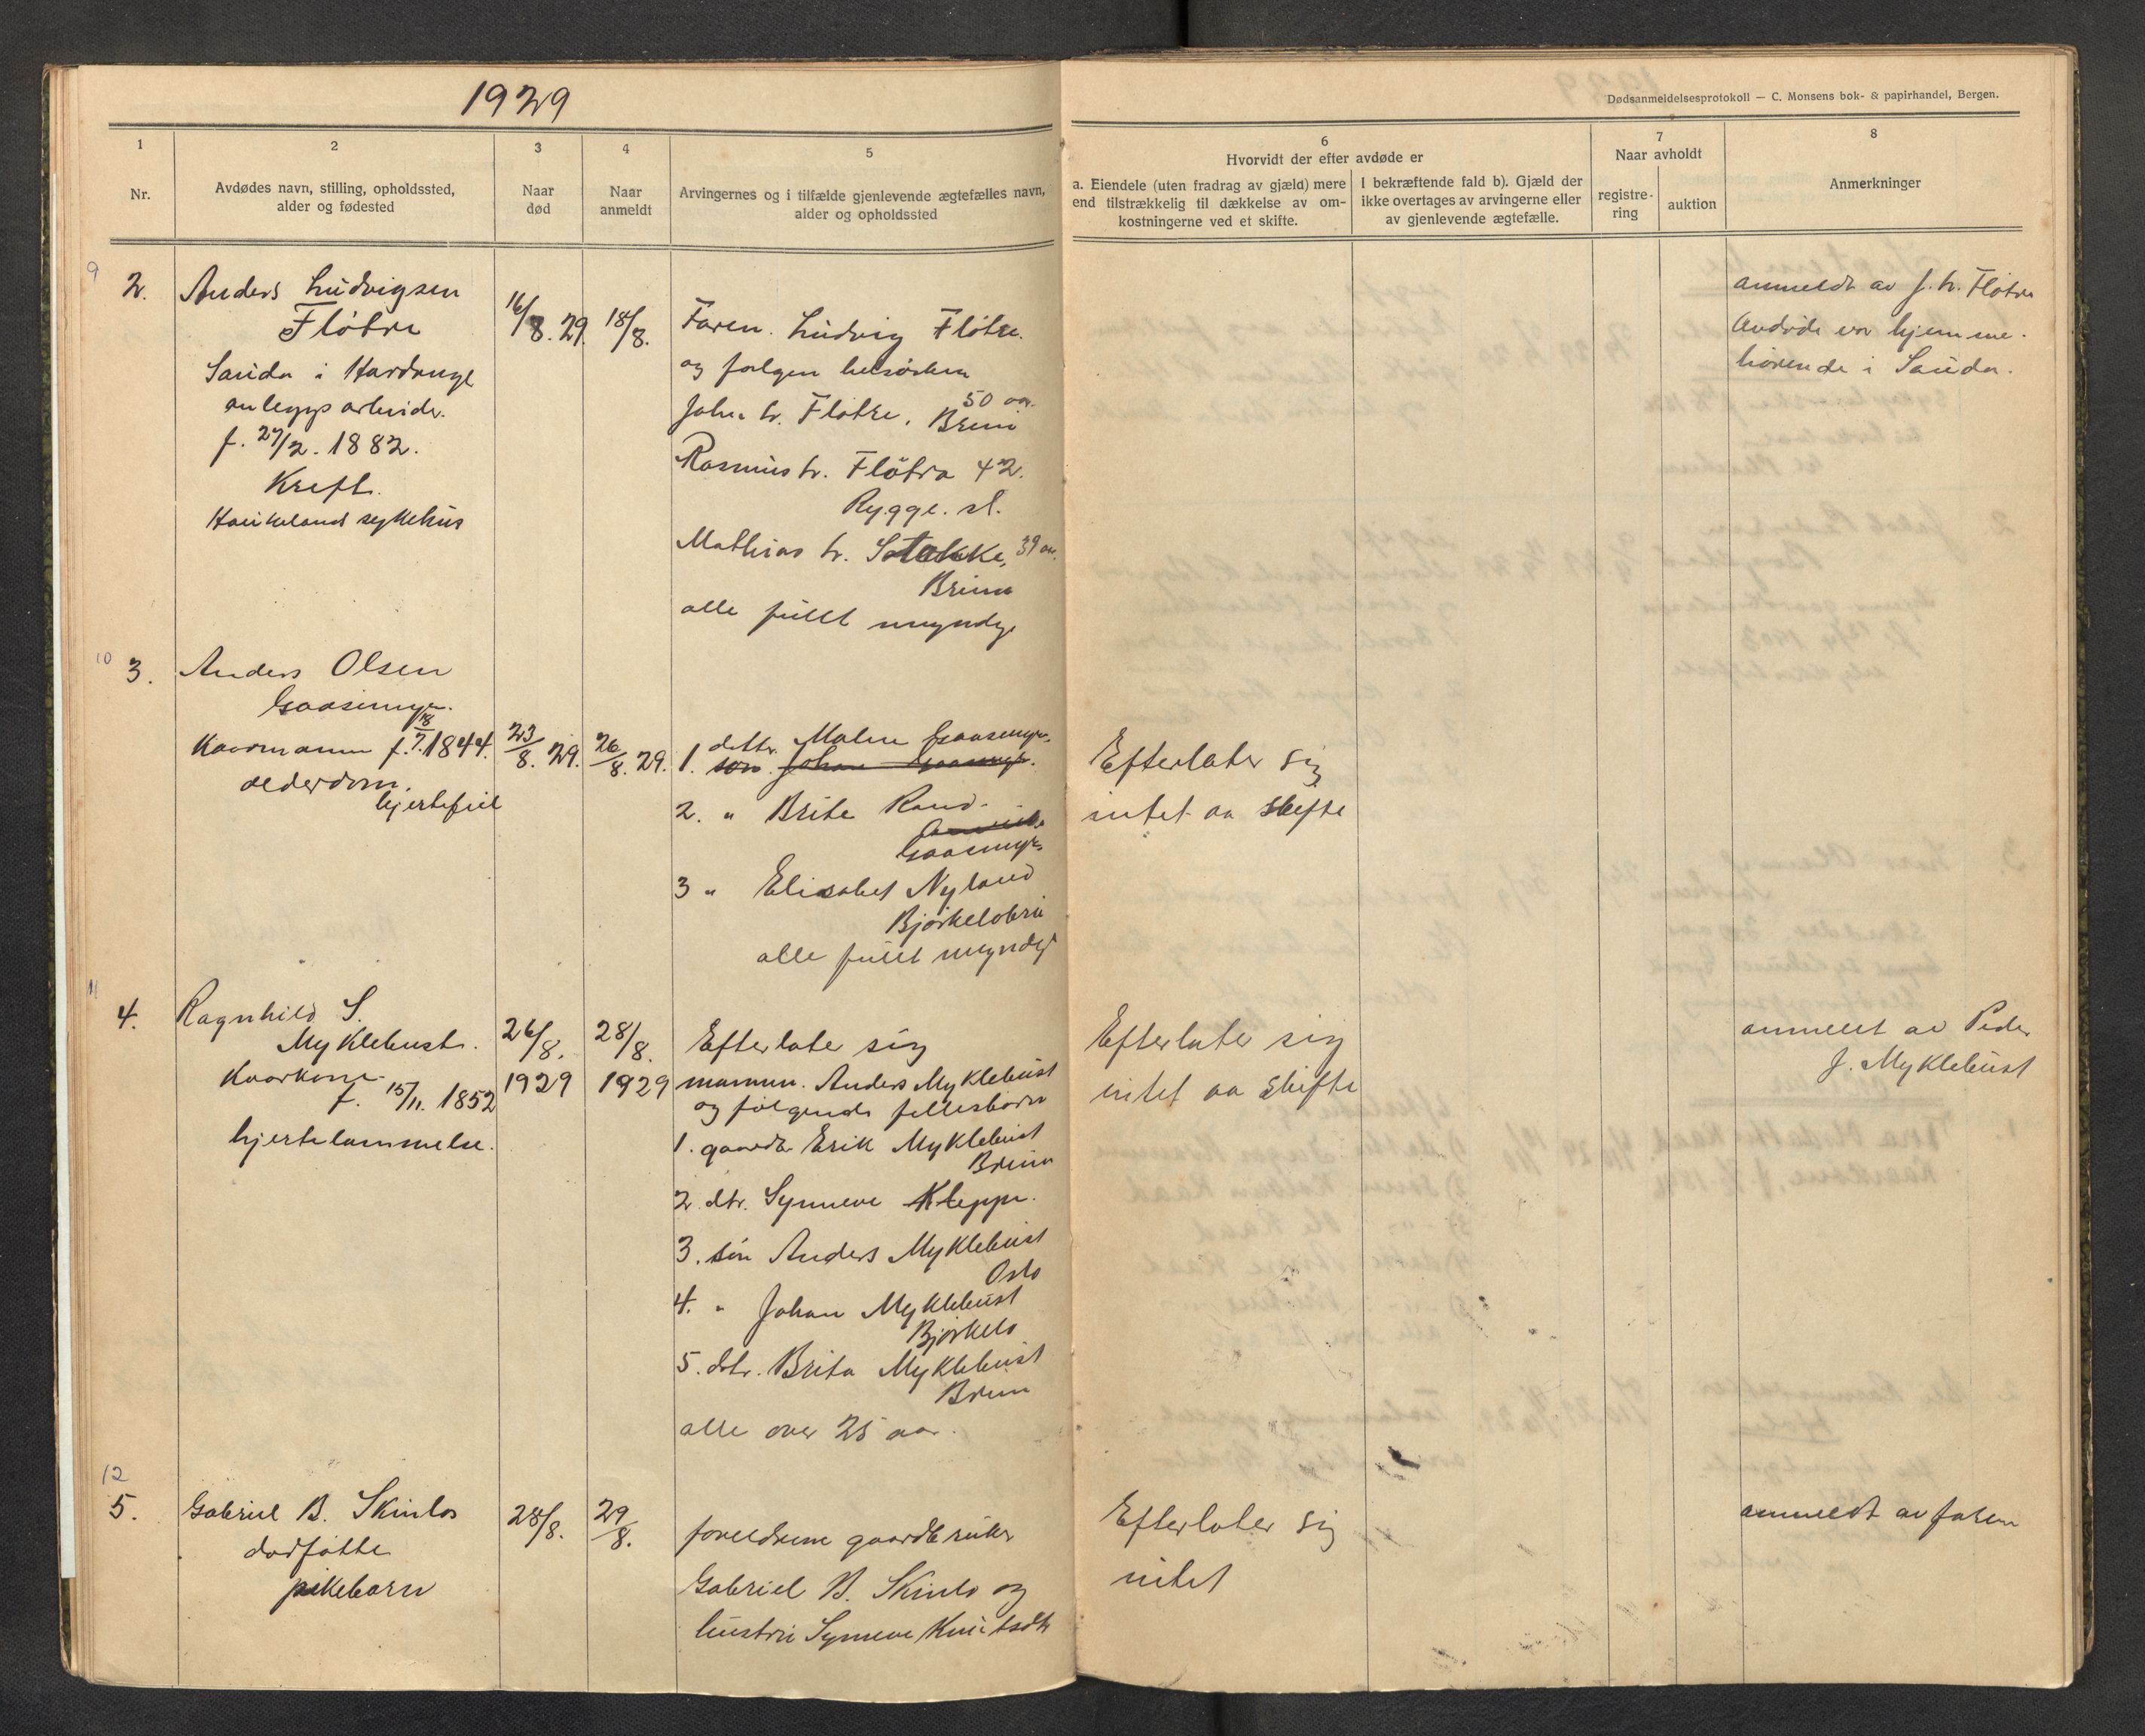 1929
Dødsanmeldelsesprotokoll — C. Monsens bok- & papirhandel, Bergen.
1
Nr.
2
Avdødes navn, stilling, opholdssted,
alder og fødested
3
Naar
død
4
Naar
anmeldt
5
Arvingernes og i tilfælde gjenlevende ægtefælles navn,
alder og opholdssted
6
Hvorvidt der efter avdøde er
a. Eiendele (uten fradrag av gjæld) mere
end tilstrækkelig til dækkelse av om-
kostningerne ved et skifte.
I bekræftende fald b). Gjæld der
ikke overtages av arvingerne eller
av gjenlevende ægtefælle.
7
Naar avholdt
registre-
ring
auktion
8
Anmerkninger
9
2.
Anders Ludvigsen
Fløtre
Sauda i Hardange
anleggs arbeider.
f. 27/2. 1882.
Kreft.
Haukeland sykehus
16/8. 29.
18/8.
Faren. Ludvig Fløtre.
og følgen helsøsken
50 aar.
John L. Fløtre, Breim
Rasmus L. Fløtra 42.
Rygge. st.
Mathias L. 39 aar.
Breim
alle fullt myndge
anmeldt av J. L. Fløtre
Avdøde var hjemme-
hørende i Sauda.
10
3.
Anders Olsen
Gaasemyr.
Kaarmann f. 18/7. 1844.
alderdom.
hjertefeil
23/8. 29.
26/8. 29.
1. dottr. Malene Gaasemyr.
søn Johan Gaasemyr.
2. " Brite Rand.
Gaasemyr
3 " Elisabet Nyland
Bjørkelobru
alle fullt myndge
Efterlater sig
intet aa skifte
11
4.
Ragnhild S.
Myklebust.
Kaarkone
f. 15/11. 1852
hjertelammelse.
26/8.
1929
28/8.
1929
Efterlate sig
mannen. Anders Myklebust
og følgende fellesbørn
1. gaardbr Erik Myklebust
Breim
2. dtr. Synneve Kleppe.
3. søn Anders Myklebust
Oslo
4. " Johan Myklebust
Bjørkelo
5. dtr. Brita Myklebust
Breim
alle over 25 aar.
Efterlater sig
intet aa skifte
anmeldt av Peder
J. Myklebust
12
5.
Gabriel B. Skinlos
dødfødte
pikebarn
28/8.
29/8.
foreldrene gaardbruker
Gabriel B. Skinlo og
hustru Synneve Knutsdtr
Efterlater sig
intet
anmeldt av faren